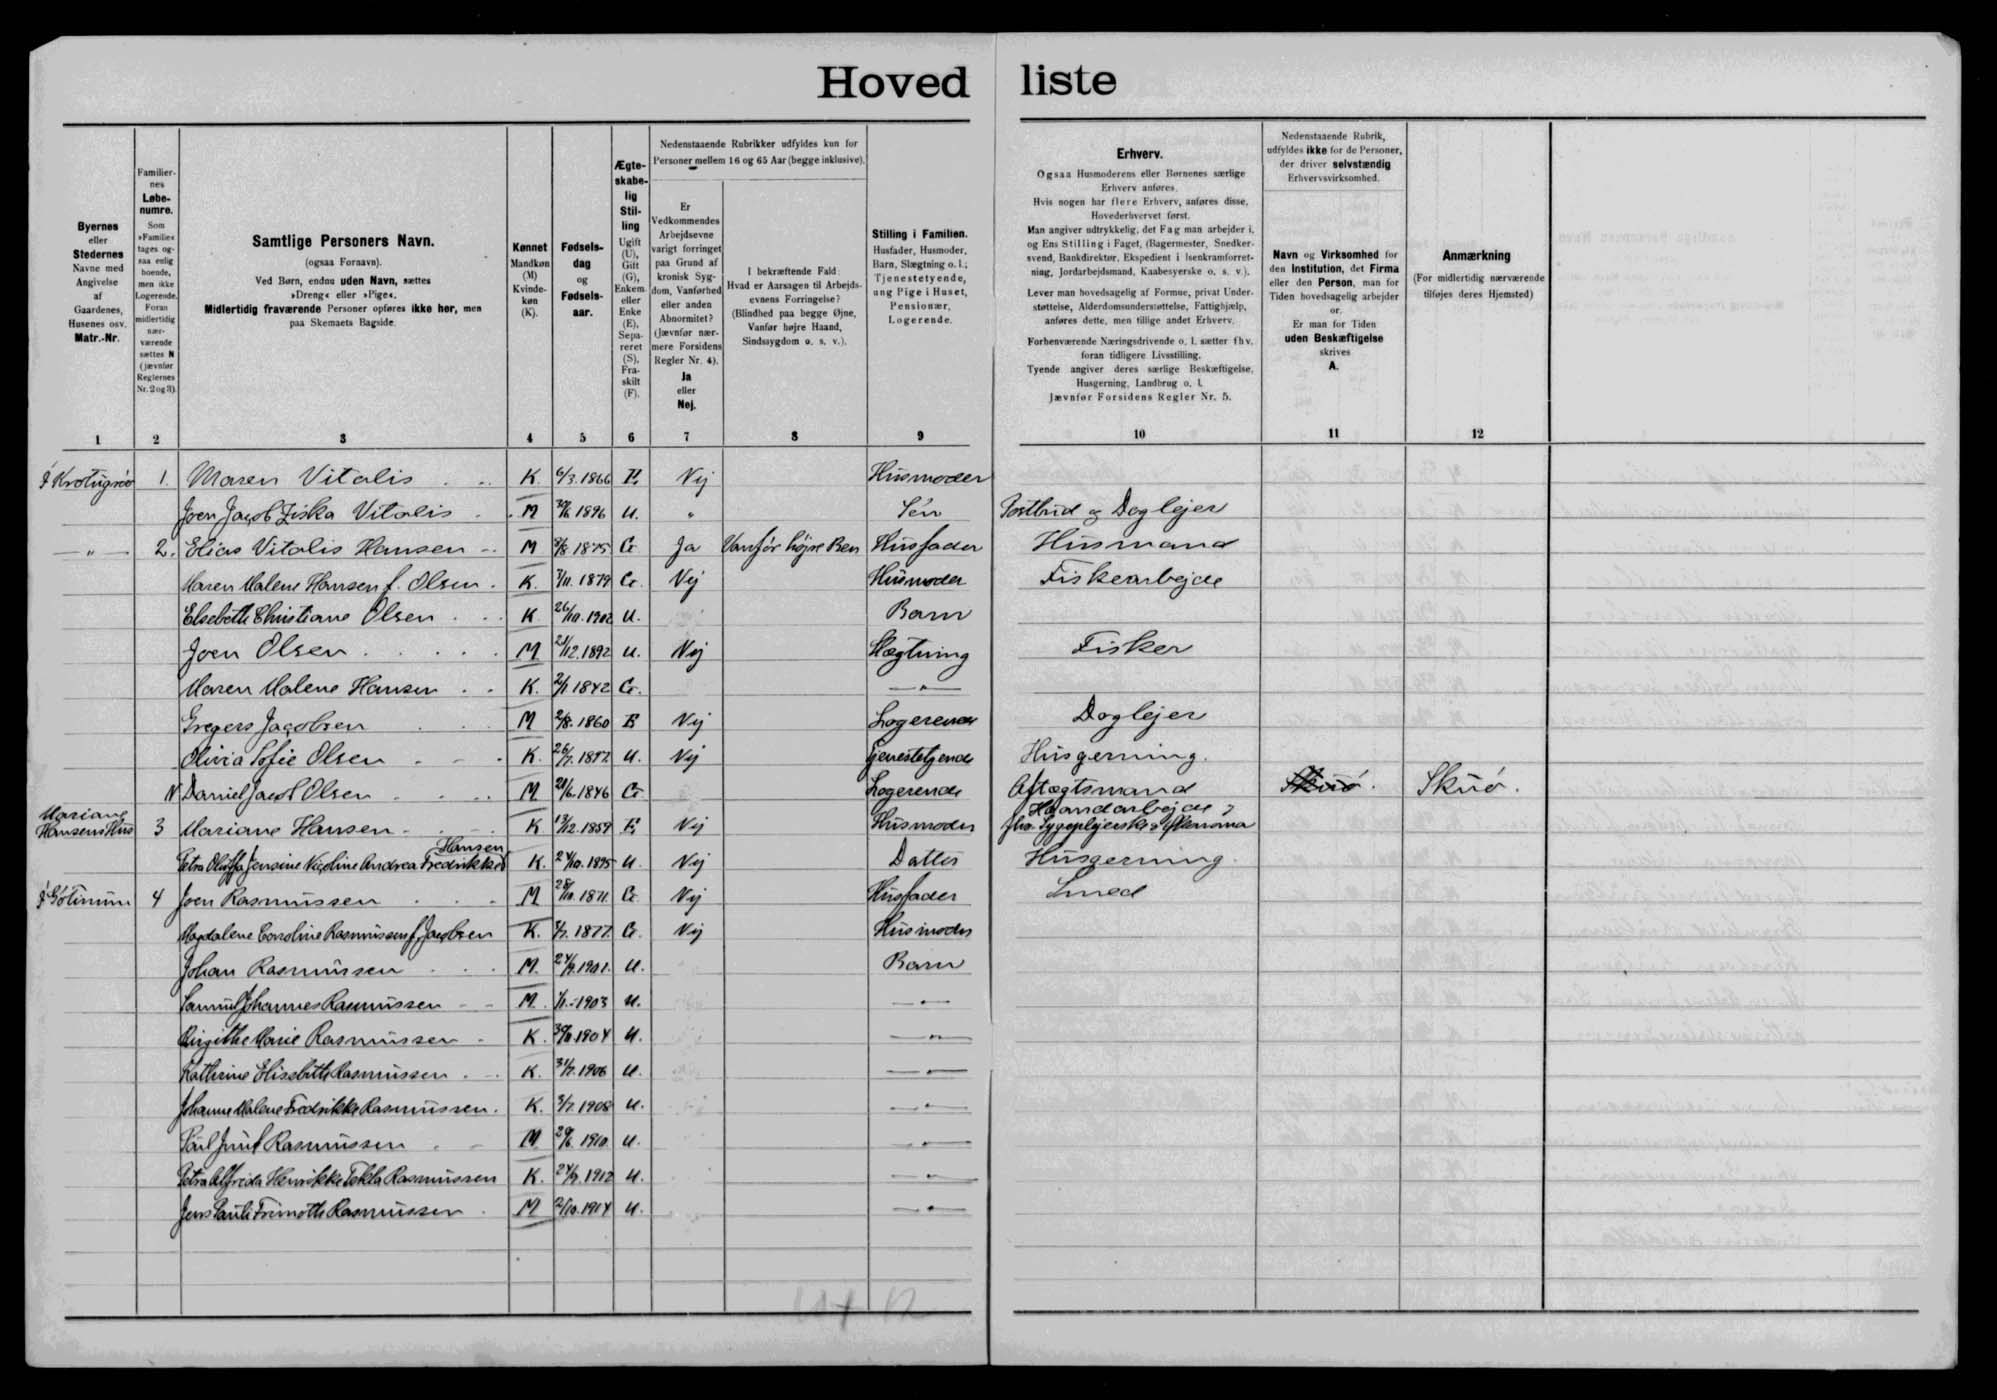 Hoved liste
Byernes
eller
Stedernes
Navne med
Angivelse
af
Gaardenes,
Husenes osv.
Matr.-Nr.
Familier-
nes
Løbe-
numre.
Som
»Familie«
tages og-
saa enlig
boende,
men ikke
Logerende.
Foran
midlertidig
nær-
værende
sættes N
(jævnfør
Reglernes
Nr. 2 og 3).
Samtlige Personers Navn.
(ogsaa Fornavn).
Ved Børn, endnu uden Navn, sættes
»Dreng« eller »Pige«.
Midlertidig fraværende Personer opføres ikke her, men
paa Skemaets Bagside.
Kønnet
Mandkøn
(M)
Kvinde-
køn
(K).
Fødsels-
dag
og
Fødsels-
aar.
Ægte-
skabe-
lig
Stil-
ling
Ugift
(U),
Gift
(G),
Enkem.
eller
Enke
(E),
Sepa-
reret
(S),
Fra-
skilt
(F).
Nedenstaaende Rubrikker udfyldes kun for
Personer mellem 16 og 65 Aar (begge inklusive).
Er
Vedkommendes
Arbejdsevne
varigt forringet
paa Grund af
kronisk Syg-
dom, Vanførhed
eller anden
Abnormitet?
(Jævnfør nær-
mere Forsidens
Regler Nr. 4).
Ja
eller
Nej.
I bekræftende Fald:
Hvad er Aarsagen til Arbejds-
evnens Forringelse?
(Blindhed paa begge Øjne,
Vanfør højre Haand,
Sindssygdom o. s. v.).
Stilling i Familien.
Husfader, Husmoder,
Barn, Slægtning o. l.;
Tjenestetyende,
ung Pige i Huset,
Pensionær,
Logerende.
Erhverv.
Ogsaa Husmoderens eller Børnenes særlige
Erhverv anføres.
Hvis nogen har flere Erhverv, anføres disse,
Hovederhvervet først.
Man angiver udtrykkelig, det Fag man arbejder i,
og Ens Stilling i Faget, (Bagermester, Snedker-
svend, Bankdirektør, Ekspedient i Isenkramforret-
ning, Jordarbejdsmand, Kaabesyerske o. s. v.).
Lever man hovedsagelig af Formue, privat Under-
støttelse, Alderdomsunderstøttelse, Fattighjælp,
anføres dette, men tillige andet Erhverv.
Forhenværende Næringsdrivende o. l. sætter fhv.
foran tidligere Livsstilling.
Tyende angiver deres særlige Beskæftigelse,
Husgerning, Landbrug o. l.
Jævnfør Forsidens Regler Nr. 5.
Nedenstaaende Rubrik,
udfyldes ikke for de Personer,
der driver selvstændig
Erhvervsvirksomhed.
Navn og Virksomhed for
den Institution, det Firma
eller den Person, man for
Tiden hovedsagelig arbejder
for.
Er man for Tiden
uden Beskæftigelse
skrives
A.
Anmærkning
(For midlertidig nærværende
tilføjes deres Hjemsted)
1 2 3 4 5 6 7 8 9 10 11 12
1. Maren Vitalis K. 6/3. 1866 E Nej Husmoder
Joen Jacob Ziska Vitalis M 1896 U. " Sön Postbud og Daglejer
— " — 2. Elias Vitalis Hansen M 1875 G Ja Vanför höjre Ben Husfader Husmand
Maren Malene Hansen f. Olsen K. 1879 G. Nej Husmoder Fiskearbejde
Elsebeth Christiane Olsen K 1902 U. Barn
Joen Olsen M 21/12. 1892 U. Nej Slægtning Fisker
Maren Malene Hansen K. 1842 G. — " —
Gregers Jacobsen M 2/8. 1860 E Nej Logerende Daglejer
Olivia Sofie Olsen K. U. Nej Tjenestetyende Husgerning.
N Daniel Jacob Olsen M 1846 G Logerende Aftægtsmand Skuö. Skuö.
Mariane
Hansens Hus 3 Mariane Hansen K 13/12. 1859 E Nej Husmoder Haandarbejde
fhv. Sygeplejerske
Hansen
Petra Jensine Nicoline Andrea K. 1895 U. Nej Datter Husgerning.
4 Joen Rasmussen M 28/10. 1871. G. Nej Husfader Smed
Magdalene Caroline Rasmussen f. Jacobsen K. 1877. G. Nej Husmoder
Johan Rasmussen M. 24/9. 1901. U. Barn
Samuel Johannes Rasmussen M. 1903 U. — " —
Birgithe Marie Rasmussen K. 1904 U. — " —
Kathrine Elisabeth Rasmussen K. 31/7. 1906 U. — " —
Johanne Malene Fredrikke Rasmussen. K. 3/7. 1908 U. — " —
Rasmussen M 29/6. 1910. U. — " —
Petra Alfrida Henrikke Tekla Rasmussen K. 24/9. 1912 U. — " —
Jens Pauli Rasmussen M 2/10. 1914 U. — " —